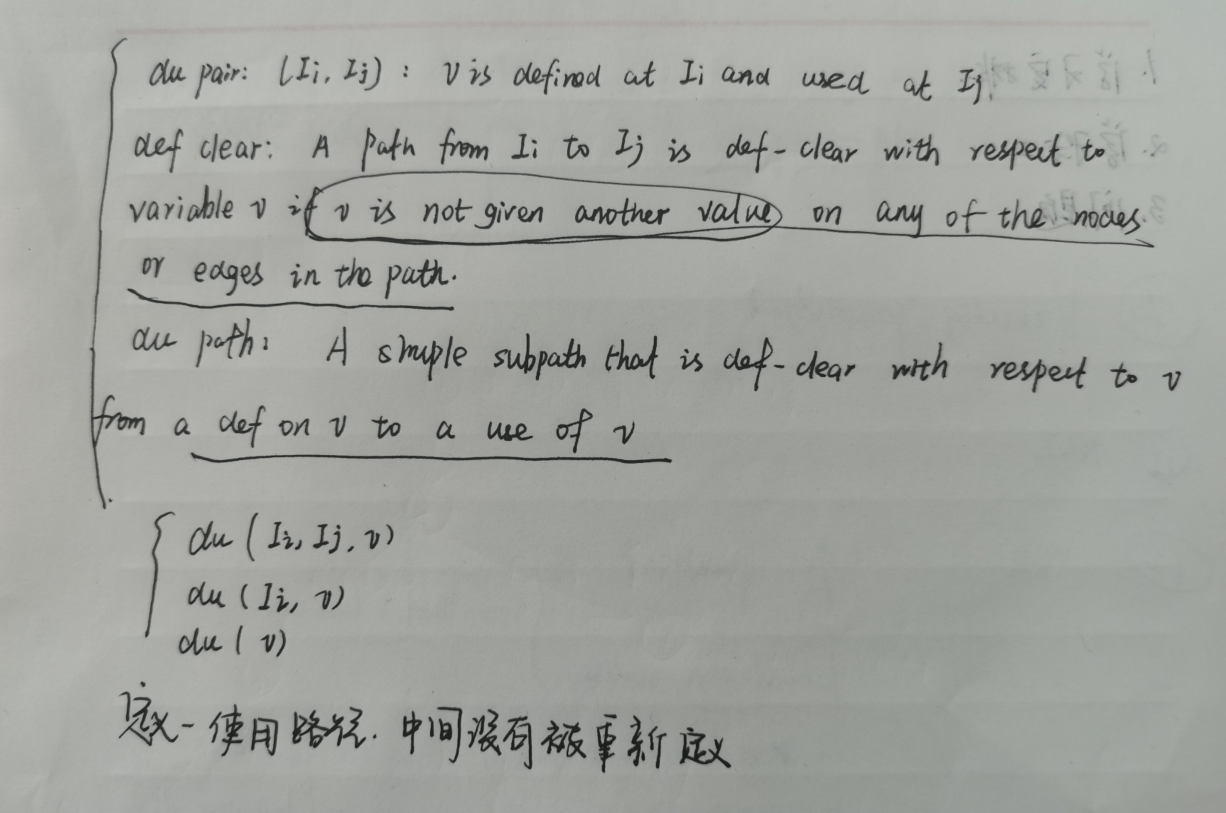 du pair: (Ii, Ij) : v is defined at Ii and used at Ij.
def clear: A path from Ii to Ij is def-clear with respect to
variable v if v is not given another value on any of the nodes
or edges in the path.
du path: A simple subpath that is def-clear with respect to v
from a def on v to a use of v
du (Ii, Ij, v)
du (Ii, v)
du (v)
定义-使用路径. 中间没有被重新定义